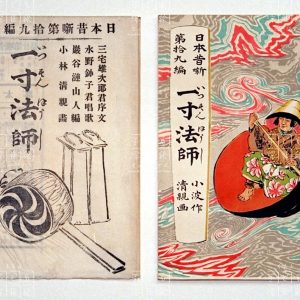 日本昔噺第拾九編
三宅雄次郎君序文
永野鉢子君唱歌
巌谷漣山人編
小林清親畫
一寸法師
日本昔噺
第拾九編
一寸法師
小波作
清親画